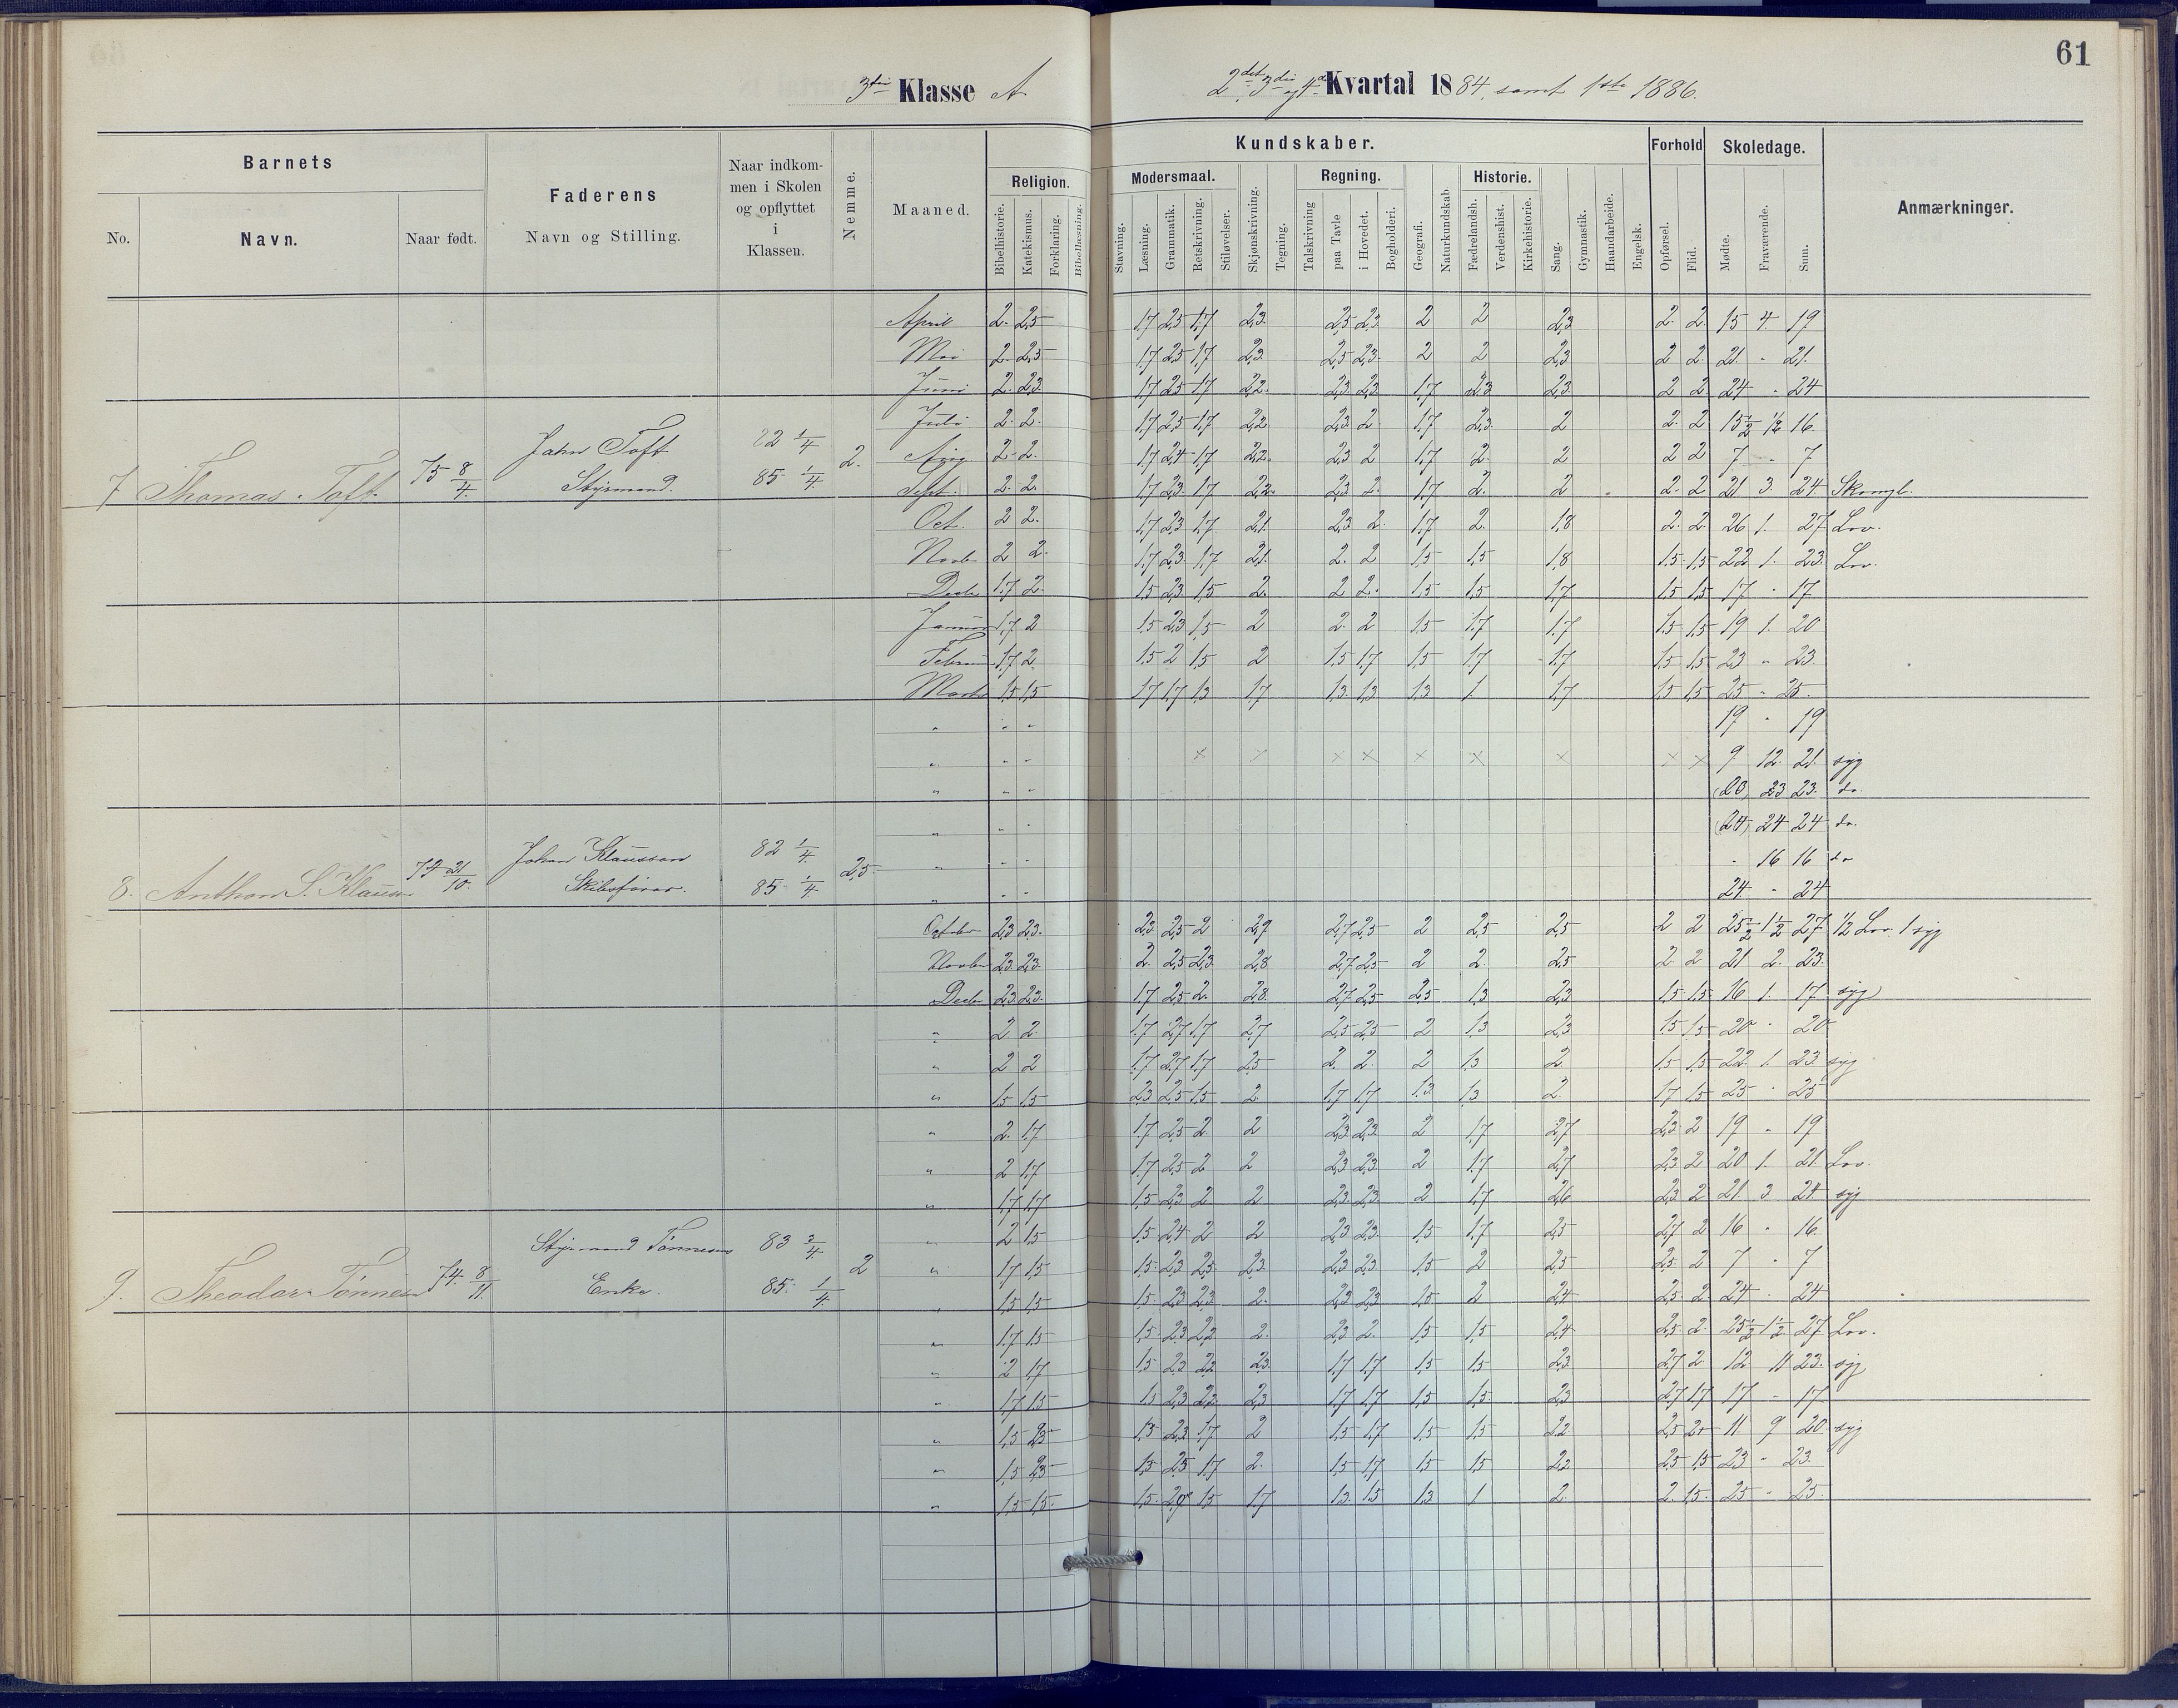 61
3die Klasse A
2det, 3die og 4de Kvartal 1884, samt 1ste 1886.
Barnets
No.
Navn.
Naar født.
Faderens
Navn og Stilling.
Naar indkom-
men i Skolen
og opflyttet
i
Klassen.
Nemme.
Maaned.
Kundskaber.
Religion.
Bibelhistorie.
Katekismus.
Forklaring.
Bibellæsning.
Modersmaal.
Stavning.
Læsning.
Grammatik.
Retskrivning.
Stiløvelser.
Skjønskrivning.
Tegning.
Regning.
Talskrivning
paa Tavle
i Hovedet.
Bogholderi.
Geografi.
Naturkundskab
Historie.
Fædrelandsh.
Verdenshist.
Kirkehistorie.
Sang.
Gymnastik.
Haandarbeide.
Engelsk.
Forhold
Opførsel.
Flid.
Skoledage.
Mødte.
Fraværende.
Sum.
Anmærkninger.
April 2. 2,5 1,7 2,5 1,7 2,3 2,5 2,3 2 2 2,3 2. 2. 15 4. 19
Mai 2. 2,5 1,7 2,5 1,7 2,3 2,5 2,3. 2 2 2,3 2 2. 21. " 21.
Juni 2. 2,3 1,7 2,5 1,7 2,2. 2,3. 2,3. 1,7 2,3 2,3 2 2 24 " 24
Juli 2. 2. 1,7 2,5 1,7 2,2 2,3 2. 1,7 2,3. 2 2. 2 15½ ½ 16.
Aug 2. 2. 1,7 2,4 1,7 2,2. 2,3 2 1,7 2. 2 2 2 7 " 7
Sept. 2. 2. 1,7 2,3. 1,7 2,2. 2,3 2. 1,7 2. 2 2. 2 21 3. 24
7 Thomas Toft. 75 8/4. John Toft Styrmand. 82 1/4 85 1/4 2.
Oct. 2 2. 1,7 2,3 1,7 2,1. 2,3 2. 1,7 2. 1,8 2. 2. 26 1. 27 Lov.
Novbr 2 2. 1,7 2,3. 1,7 2,1. 2. 2 1,5 1,5 1,8 1,5 1,5 22 1. 23. Lov.
Decbr 1,7 2. 1,5 2,3 1,5 2. 2 2. 1,5 1,5 1,7 1,5 1,5 17 " 17
Januar 1,7 2 1,5 2,3 1,5 2 2. 2 1,5 1,7 1,7 1,5 1,5 19 1. 20
Februar 1,7 2 1,5 2 1,5 2 1,5 1,7 1,5 1,7 1,7 1,5 1,5 23 " 23
Marts 1,5 1,5 1,7 1,7 1,3 1,7 1,3 1,3 1,3 1. 1,7 1,5 1,5 25 " 25.
" " " 19 " 19
" " " × × × × × × × × × 9 12. 21. syg
" " " (20) 23 23. do.
" " " (24) 24 24 do.
" " " " 16 16 do
" " " 24 " 24
8. Anthon S. Klaus 21/10. Johan Klaussen Skibsfører. 82 1/4 85 1/4 2,5.
October 2,3 2,3. 2,3 2,5 2 2,7 2,7 2,5 2 2,5 2,5 2 2 25½ 1½ 27 ½ Lov. 1 syg
Novbr 2,3 2,3 2. 2,5 2,3 2,8 2,7 2,5 2 2. 2,5 2 2 21 2. 23.
Decbr 2,3 2,3. 1,7 2,5 2. 2,8. 2,7 2,5 2,5 1,3 2,3 1,5 1,5 16 1. 17 syg
" 2 2. 1,7 2,7 1,7 2,7 2,5 2,5 2 1,3 2,3 1,5 1,5 20 " 20
" 2 2 1,7 2,7 1,7 2,5 2. 2. 2 1,3 2 1,5 1,5 22. 1. 23 syg
" 1,5 1,5 2,3 2,5 1,5 2 1,7 1,7 1,3 1,3 2. 1,7 1,5 25 " 25
" 2. 1,7 1,7 2,5 2. 2 2,3 2,3 2 1,7 2,7 2,3 2 19 " 19
" 2 1,7 1,7 2,5 2 2 2,3 2,3 2 1,7 2,7 2,3 2 20 1. 21 Lov.
" 1,7 1,7 1,5 2,3 2 2 2,3. 2,3. 2 1,7 2,6 2,3 2 21. 3 24. syg
" 2 1,5 1,5 2,4 2 2 2,3 2,3. 1,5 1,7 2,5 2,7 2 16 " 16
" 1,7 1,5 1,5 2,3 2,5 2,3 2,3 2,3. 1,5 2 2,5 2,5. 2 7 " 7
" 1,5 1,5 1,5 2,3 2,3 2. 2,3 2,3 1,5 2 2,4 2,5. 2 24 " 24
9. Theodor Tønnesen 74. 8/11. Styrmand Tønnesens Enke. 83 85. 1/4. 2
" 1,7 1,5 1,5 2,3 2,2 2. 2,3 2. 1,5 1,5 2,4 2,5 2. 25½ 1½ 27 Lov.
" 2 1,7 1,5 2,2 2,2 2,3. 1,7 1,7 1,5 1,5 2,3 2,7 2 12 11 23. syg
" 1,7 1,5 1,5 2,3 2,2 2,3 1,7 1,7 1,5 1,5 2,3 2,7 1,7 17 " 17
" 1,5 2,3 1,5 2,3 1,7 2 1,5 1,7 1,5 1,5 2,2 2,5 2 11. 9 20 syg
" 1,5 2,3 1,5 2,5 1,7 2. 1,5 1,7 1,5 1,5 2,2 2,5 1,5 23 " 23
" 1,5 1,5. 1,5 1,5 1,7 1,3. 1,5 1,3 1 2. 2. 1,5 25 " 25.